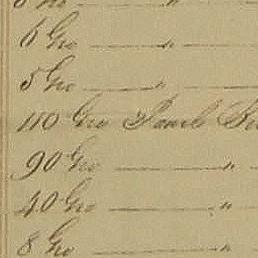 6 Gro — "
5 Gro — "
110 Gro
90 Gro — "
40 Gro — "
8 Gro — "